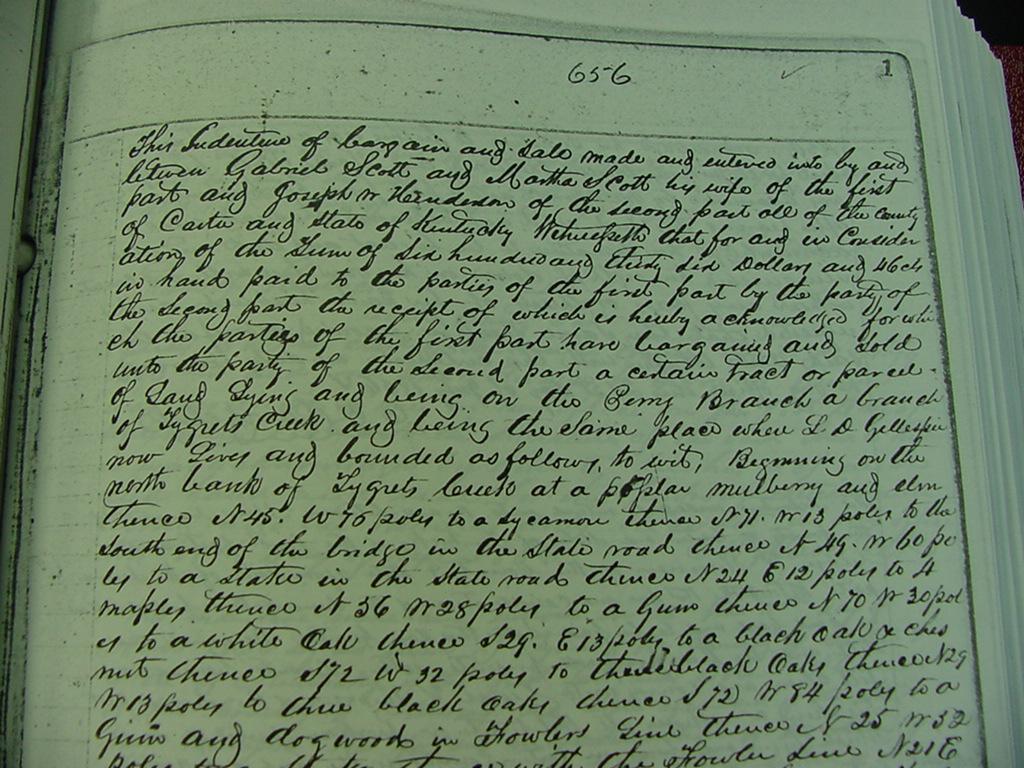 656
1
This Indenture of bargain and Sale made and entered into by and
between Gabriel Scott and Martha Scott his wife of the first
part and Joseph W Henderson of the second part all of the county
of Carter and State of Kentucky Witnesseth that for and in Consider
ation of the Sum of Six hundred and thirty six Dollars and 46 cts
in hand paid to the parties of the first part by the party of
the Second part the receipt of which is hereby acknowledged for whi
ch the parties of the first part have bargained and Sold
unto the party of the Second part a certain Tract or parcel
of Land Lying and being on the Perry Branch a branch
of Tygrets Creek and being the Same place where L D Gillespie
now Lives and bounded as follows, to wit, Beginning on the
north bank of Tygrets Creek at a poplar mulberry and elm
thence N 45. W 76 poles to a Sycamore thence N 71. W 13 poles to the
South end of the bridge in the State road thence N 49. W 60 po
les to a Stake in the State road thence N 24 E 12 poles to 4
maples thence N 36 W 28 poles to a Gum thence N 70 W 30 pol
es to a white Oak thence S 29. E 13 poles to a black Oak & ches
nut thence S 72 W 32 poles to three black Oaks thence N 29
W 13 poles to three black Oaks thence S 72 W 84 poles to a
Gum and dogwood in Fowlers Line thence N 25 W 32
poles to a with the Fowler Line N 21 E